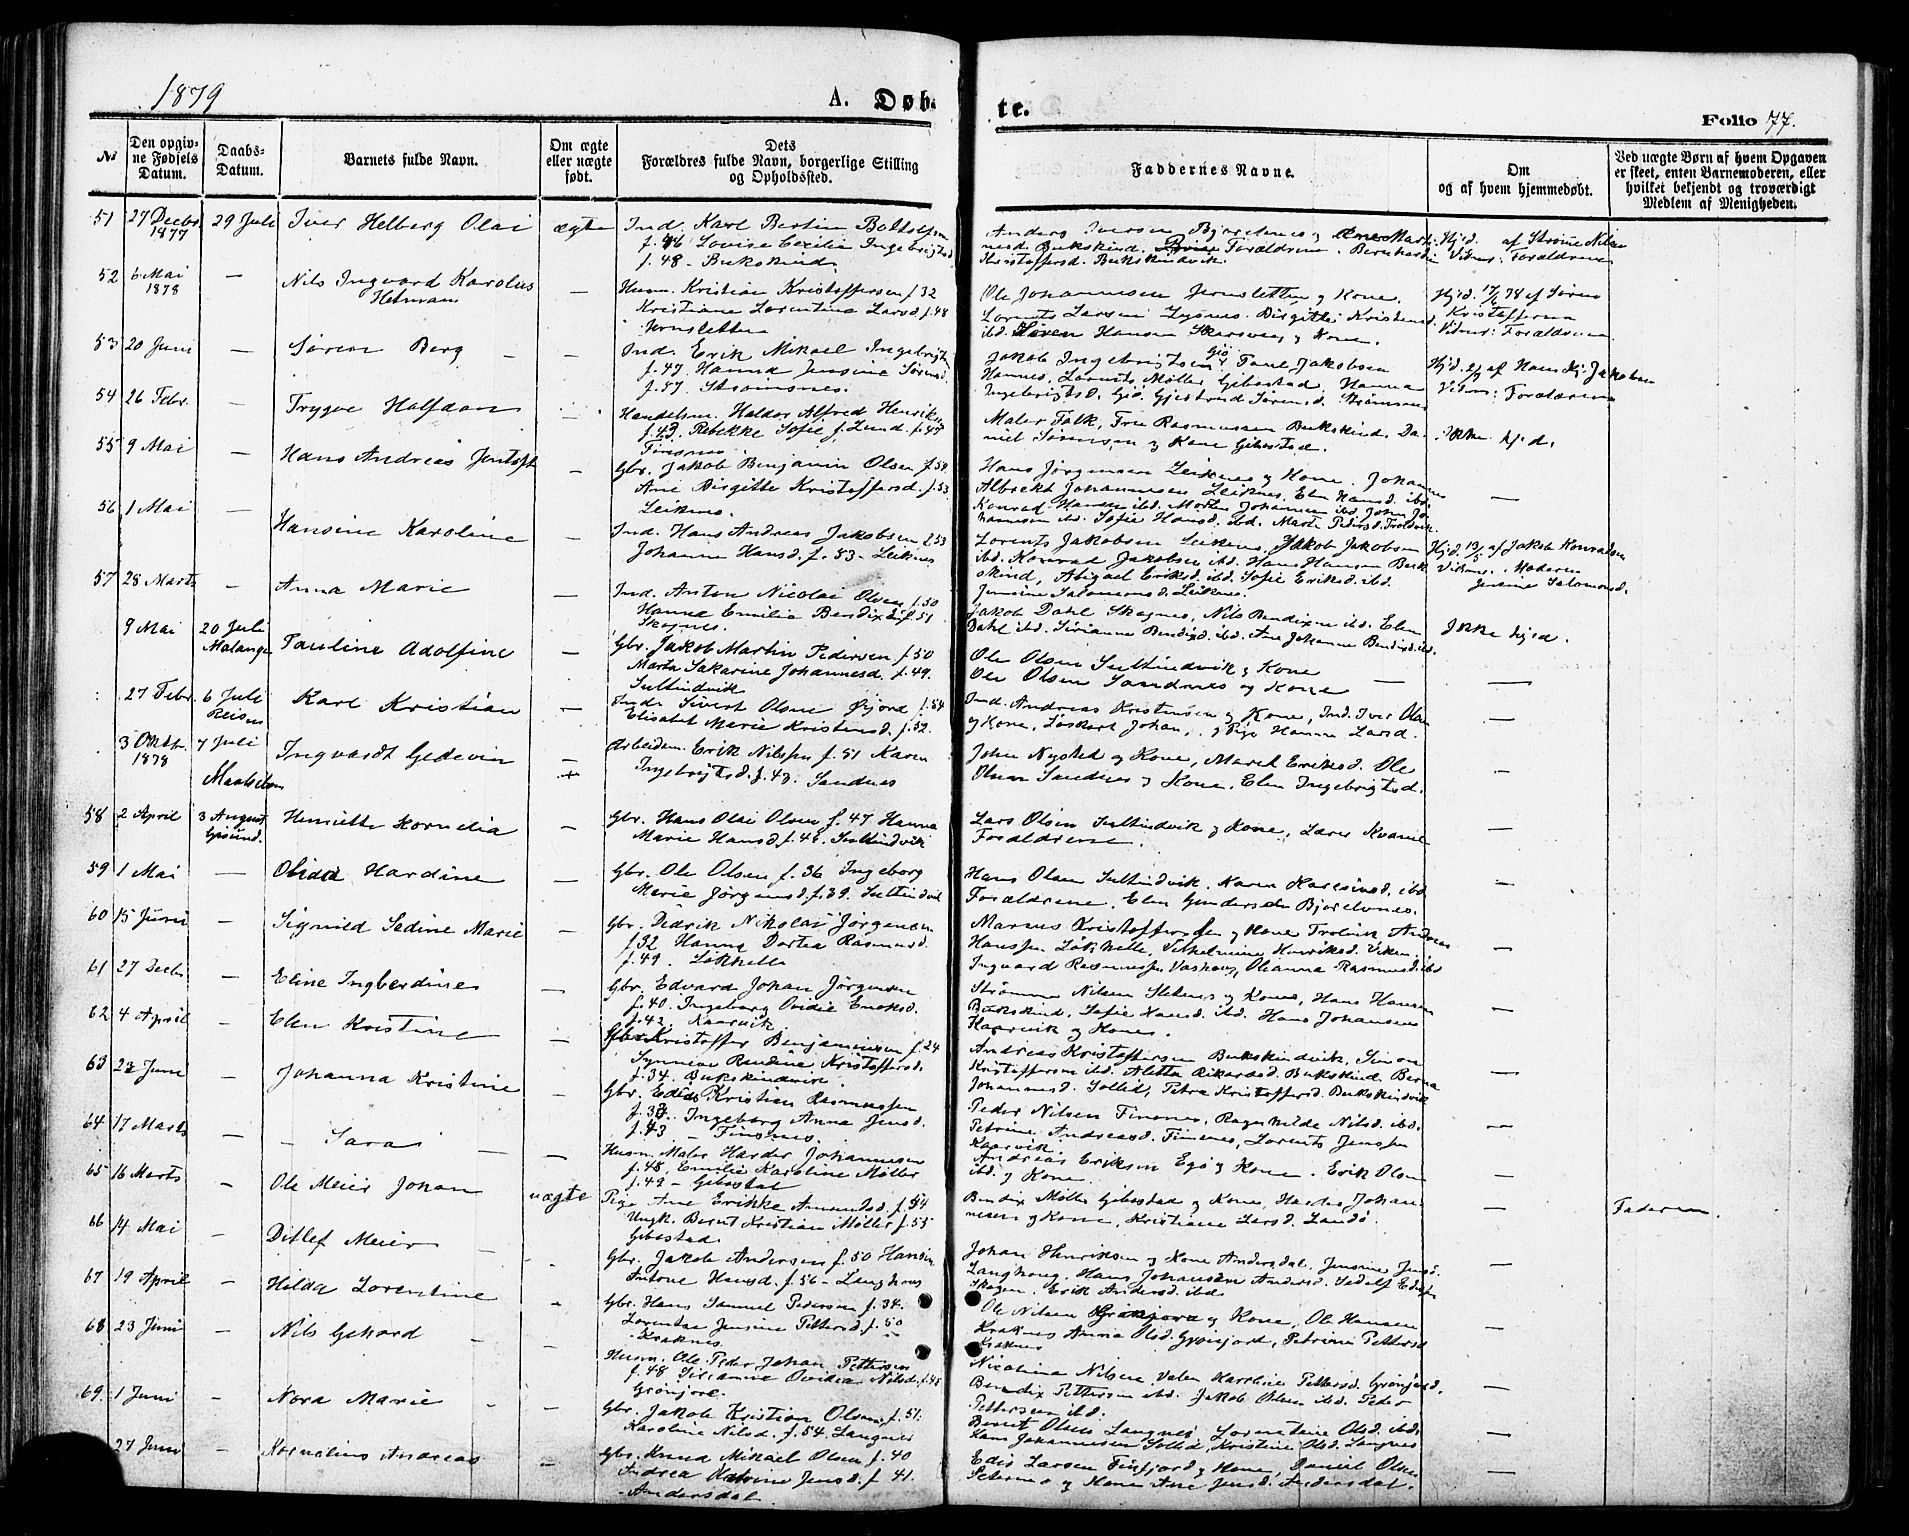 1879
A. Døb-
te.
Folio 77.
No
Den opgiv-
ne Fødsels
Datum.
Daabs-
Datum.
Barnets fulde Navn.
Om ægte
eller uægte
født.
Dets
Forældres fulde Navn, borgerlige Stilling
og Opholdssted.
Faddernes Navne.
Om
og af hvem hjemmedøbt.
Ved uægte Børn af hvem Opgaven
er skeet, enten Barnemoderen, eller
hvilket bekjendt og troværdigt
Medlem af Menigheden.
51 27 Decbr 1877 29 Juli Iver Helberg Olai ægte Ind. Karl Bertin
f. 46 Louise Cecilia Ingebrigtsd
f. 48 - Bukskind
Anders Iversen Bjorelvnes og
Bukskind. Forældrene. Bernhardin
Kristoffersd. Bukskindvik.
Hjd. af Strøm Nilsen
Vidner: Forældrene
52 6 Mai 1878 — Nils Ingvard Karolus
Hetman
— Husm. Kristian Kristoffersen f. 32
Kristiane Lorentina Larsd. f. 48
Jernsletten
Ole Johannesen Jernsletten og Kone.
Lorents Larsen Birgitte Kristensd
ibd. Søren Hansen Skarsvaag og Kone.
Hjd. 17/6 78 af Søren
Kristoffersen
Vidner: Forældrene
53 20 Juni — Søren Berg - — Ind. Erik Mikael Ingebrigts
f. 47. Hanna Jensine Sørensd.
f. 57. Strømsnes.
Jakob Ingebrigtsen Gjø Paul Jakobsen
Hannes, Lorents Møller Gibostad, Hanna
Ingebrigtsd. Gjø Gjertrud Sørensd. Strømsnes
Hjd. af Hans Kj. Jakobsen
Vidner: Forældrene
54 26 Febr. — Trygve Halfdan — Handelsm. Haldor Alfred Henriksen
f. 43. Rebekke Sofie f. Lund. f. 45
Finsnes.
Maler Falk, Fru Rasmussen Bukskind, Da-
niel Sørensen og Kone Gibostad.
Ikke hjd.
55 9 Mai — Hans Andreas Jentoft — Gbr. Jakob Benjamin Olsen f. 54.
Ane Birgitte Kristoffersd. f. 53
Leiknes.
Hans Jørgensen Leiknes og Kone. Johannes
Albrekt Johannesen Leiknes, Elen Hansd. ibd.
Konrad Hansen ibd. Morten Johannesen ibd. John Jo-
hannesen ibd. Sofie Hansd. ibd. Marte Pedersd. Trolvik.
—
56 1 Mai — Hansine Karoline — Ind. Hans Andreas Jakobsen f. 53
Johanne Hansd. f. 53 - Leiknes
Lorents Jakobsen Leiknes, Jakob Jakobsen
ibd. Konrad Jakobsen ibd. Hans Hansen Buk-
skind, Abigael Eriksd. ibd. Sofie Eriksd. ibd.
Jensine Salomonsd. Leiknes.
Hjd. 13/5 af Jakob Konradsen
Vidner: Moderen
Jensine Salomonsd.
57 28 Marts — Anna Marie — Ind. Anton Nicolai Olsen f. 50
Hanna Emilia Bendixd. f. 51
Skognes.
Jakob Dahl Skognes, Nils Bendixen ibd. Elen
Dahl ibd. Sirianna Bendixd. ibd. Ane Johanne Bendixd. ibd.
Ikke hjd.
9 Mai 20 Juli
Malangen
Pauline Adolfine — Gbr. Jakob Martin Pedersen f. 50
Marta Sakarine Johannesd. f. 49.
Sultindvik
Ole Olsen Sultindvik og Kone
Ole Olsen Sandnes og Kone
—
27 Febr. 6 Juli
Reisen
Karl Kristian — Ind. Sivert Olsen Øijord f. 54
Elisabet Marie Kristensd. f. 52.
Ind. Andreas Kristensen og Kone, Ind. Iver Olsen
og Kone, Johan, og Pige Hanna Larsd.
—
3 Oktbr. 1878 7 Juli
Maalselven
Ingvardt Gedevin — + Arbeidsm. Erik Nilssen f. 51 Karen
Ingebrigtsd. f. 47. Sandnes
John Nysted og Kone, Marit Eriksd. Ole
Olsen Sandnes og Kone, Elen Ingebrigtsd.
—
58 2 April 3 August
Gisund.
Henriette Kornelia — Gbr. Hans Olai Olsen f. 47 Hanna
Marie Hansd. f. 48. Sultindvik
Lars Olsen Sultindvik og Kone, Lærer Kvame
Forældrene.
—
59 1 Mai — Hardine — Gbr. Ole Olsen f. 36 Ingeborg
Marie Jørgensd. f. 39. Sultindvik
Hans Olsen Sultindvik. Karen ibd
Forældrene, Elen Gundersd. Bjorelvnes.
—
60 15 Juni — Signild Sedine Marie — Gbr. Didrik Nikolai Jørgensen
f. 32 Hanna Dortea Rasmusd.
f. 49. Løkhelle
Marius Kristoffersen og Kone Trolvik Andreas
Hanssen Løkhelle, Vilhelmine Henriksd. Viken,
Ingvard Rasmussen Vaskang, Olianna Rasmusd. ibd
—
61 27 Decbr — Eline Ingberdine — Gbr. Edvard Johan Jørgensen
f. 40. Ingeborg Ovidie Enoksd.
f. 42. Kaarvik
Strømme Nilsen og Kone, Hans Hansen
Bukskind, Sofie Hansd. ibd. Hans Johansen
Kaarvik og Kone.
—
62 4 April — Elen Kristine — Gbr. Kristoffer Benjaminsen f. 24
Synnine Rardina Kristoffersd.
f. 34. Bukskindvik.
Andreas Kristoffersen Bukskindvik, Simon
Kristoffersen ibd. Aletta Rikardsd. Bukskind. Berna
Johannesd. Sollid, Petra Kristoffersd. Bukskindvik
—
63 23 Juni — Johanna Kristine — Gbr. Edvard Kristian Rasmussen
f. 37. Ingeborg Anna Jensd.
f. 43 - Finsnes
Peder Nilsen Finsnes, Ragnhilde Nilsd. ibd.
Petrine Andreasd. Finsnes, Lorents Jenssen
Kaarvik
—
64 17 Marts — - Sara — — Husm. Maler Harder Johannesen
f. 48, Emilie Karoline Møller
f. 49 - Gibostad
Andreas Eriksen Egø og Kone. Erik Olsen
ibd. og Kone.
—
65 16 Marts — Ole Meier Johan uægte Pige Ane Erikke Amundsd. f. 54
Ungk. Bernt Kristian Møller f. 55
Gibostad.
Bendix Møller Gibostad og Kone, Harder Johan-
nesen og Kone, Kristiane Larsd. Landø.
—
Faderen.
66 14 Mai — Ditlef Meier - - Gbr. Jakob Andersen f. 50 Hansine
Antone Hansd. f. 56 - Langhoug
Johan Henriksen og Kone Andersdal, Jensine Jensd.
Langhoug, Hans Johansen
Skogen, Erik Andersd. ibd.
—
67 19 April — Hilda Lorentine - Gbr. Hans Samuel Pedersen f. 34.
Lorentse Jensine Pettersd. f. 50
- Kraknes.
Ole Nilsen Grønjord og Kone, Ole Hansen
Kraknes Anna Olsd. Grønjord, Petrine Pettersd.
Kraknes
—
68 23 Juni — Nils Gehard - - Husm. Ole Peder Johan Pettersen
f. 48 Sirianna Ovidia Nilsd. f. 48
Grønjord.
Nicoline Nilsen, Valen Karoline Pettersd. Grønjord.
Bendix Pettersen ibd. Jakob Olsen ibd. Peder
Pettersen ibd.
—
69 1 Juni — Nora Marie - - Gbr. Jakob Kristian Olsen f. 51.
Karoline Nilsd. f. 54. Langnes
Bernt Olsen Langnes, Olsd. ibd.
Hans Johannesen Sollid, Kristine Olsd. Langnes
—
27 Juni — Kornelius Andreas — Gbr. Knud Mikael Olsen f. 40
Andrea Katrine Jensd. f. 41.
- Andersdal.
Edis Larsen Finfjord og Kone, Daniel Olsen
og Kone Ane Jensd. Andersdal.
—